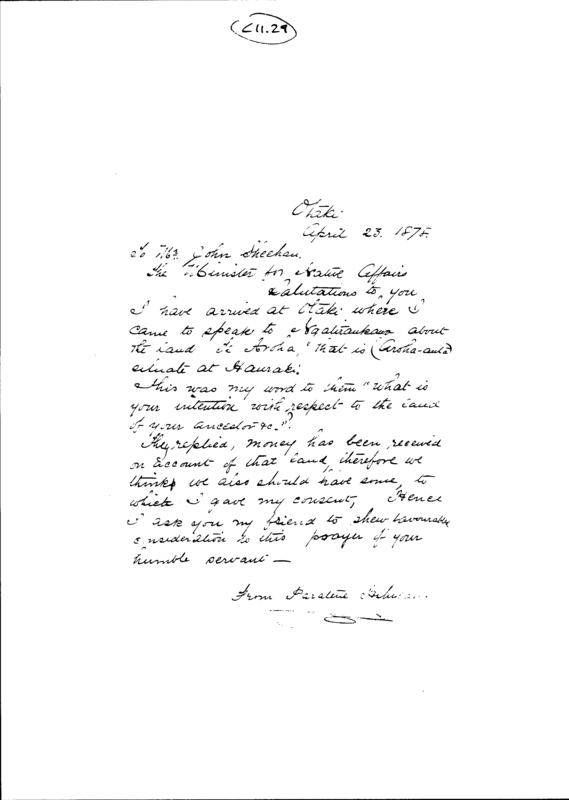 C11.29
Otaki
April 23. 1878.
To Mr. John Sheehan.
The Minister for Native Affairs
Salutations to you
I have arrived at Otaki where I
came to speak to Ngatiraukawa about
the land "Te Aroha," that is (Aroha-auta)
situate at Hauraki.
This was my word to them "what is
your intention with respect to the land
of your ancestor &c."?
They replied, money has been received
on account of that land, therefore we
think we also should have some, to
which I gave my consent, Hence
I ask you my friend to shew favourable
consideration to this prayer of your
humble servant —
From Paratene